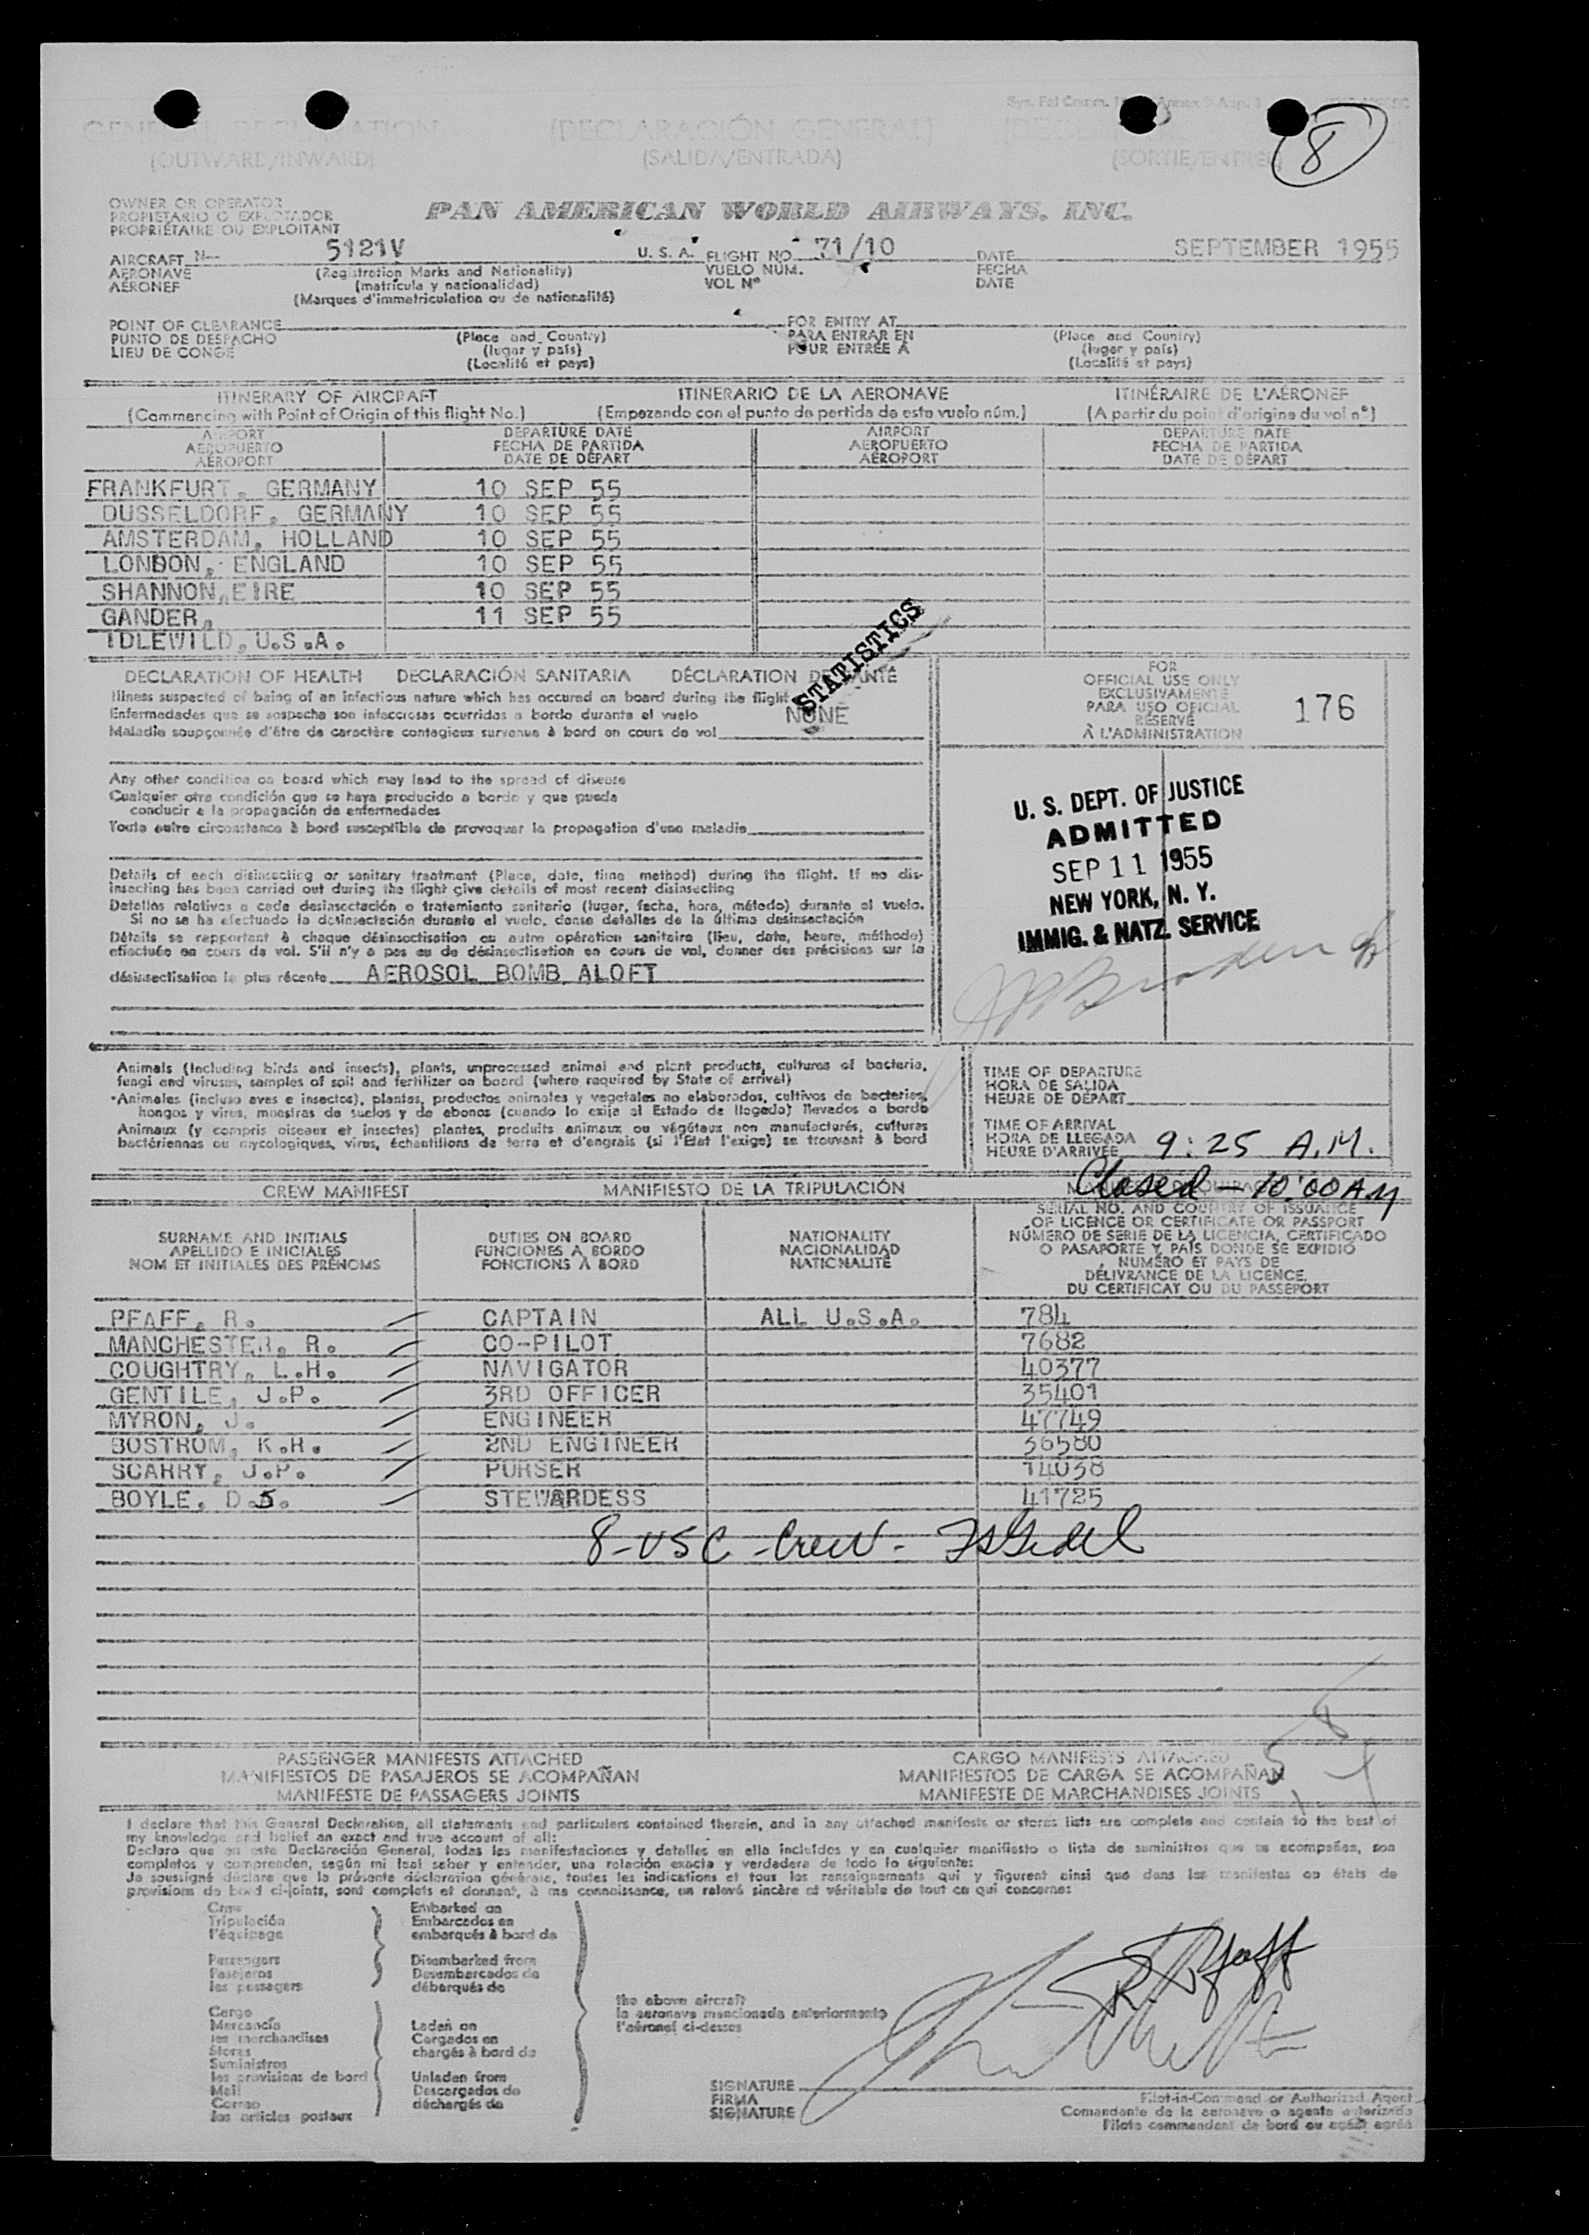 GENERAL DECLARATION (DECLARACIÓN GENERAL)
(OUTWARD/INWARD) (SALIDA/ENTRADA) (SORTIE/ENTRÉE)
8
OWNER OR OPERATOR
PROPIETARIO O EXPLOTADOR
PROPRIÉTAIRE OU EXPLOITANT
PAN AMERICAN WORLD AIRWAYS, INC.
AIRCRAFT N- 5121V U. S. A. FLIGHT NO. 71/10 DATE SEPTEMBER 1955
AERONAVE (Registration Marks and Nationality) VUELO NUM. FECHA
AÉRONEF (matrícula y nacionalidad) VOL Nº DATE
(Marques d'immatriculation ou de nationalité)
POINT OF CLEARANCE FOR ENTRY AT
PUNTO DE DESPACHO (Place and Country) PARA ENTRAR EN (Place and Country)
LIEU DE CONGÉ (lugar y país) POUR ENTRÉE À (lugar y país)
(Localité et pays) (Localité et pays)
ITINERARY OF AIRCRAFT ITINERARIO DE LA AERONAVE ITINÉRAIRE DE L'AÉRONEF
(Commencing with Point of Origin of this flight No.) (Empezando con el punto de partida de este vuelo núm.) (A partir du point d'origine du vol nº)
AIRPORT DEPARTURE DATE AIRPORT DEPARTURE DATE
AEROPUERTO FECHA DE PARTIDA AEROPUERTO FECHA DE PARTIDA
AÉROPORT DATE DE DÉPART AÉROPORT DATE DE DÉPART
FRANKFURT, GERMANY 10 SEP 55
DUSSELDORF, GERMANY 10 SEP 55
AMSTERDAM, HOLLAND 10 SEP 55
LONDON, ENGLAND 10 SEP 55
SHANNON, EIRE 10 SEP 55
GANDER, 11 SEP 55
IDLEWILD, U.S.A.
STATISTICS
DECLARATION OF HEALTH DECLARACIÓN SANITARIA DÉCLARATION DE SANTÉ
Illness suspected of being of an infectious nature which has occured on board during the flight
Enfermedades que se sospecha son infecciosas ocurridas a bordo durante el vuelo NONE
Maladie soupçonnée d'être de caractère contagieux survenue à bord en cours de vol
Any other condition on board which may lead to the spread of disease
Cualquier otra condición que se haya producido a bordo y que pueda
conducir a la propagación de enfermedades
Toute autre circonstance à bord susceptible de provoquer la propagation d'une maladie
Details of each disinsecting or sanitary treatment (Place, date, time method) during the flight. If no dis-
insecting has been carried out during the flight give details of most recent disinsecting
Detalles relativos a cada desinsectación o tratamiento sanitario (lugar, fecha, hora, método) durante el vuelo.
Si no se ha efectuado la desinsectación durante el vuelo, dense detalles de la última desinsectación
Détails se rapportant à chaque désinsectisation ou autre opération sanitaire (lieu, date, heure, méthode)
effectuée en cours de vol. S'il n'y a pas eu de désinsectisation en cours de vol, donner des précisions sur la
désinsectisation la plus récente AEROSOL BOMB ALOFT
FOR
OFFICIAL USE ONLY
EXCLUSIVAMENTE
PARA USO OFICIAL
RÉSERVÉ
À L'ADMINISTRATION
176
U. S. DEPT. OF JUSTICE
ADMITTED
SEP 11 1955
NEW YORK, N. Y.
IMMIG. & NATZ. SERVICE
Animals (Including birds and insects), plants, unprocessed animal and plant products, cultures of bacteria,
fungi and viruses, samples of soil and fertilizer on board (where required by State of arrival)
Animales (incluso aves e insectos), plantas, productos animales y vegetales no elaborados, cultivos de bacterias,
hongos y virus, muestras de suelos y de abonos (cuando lo exija el Estado de llegada) llevados a bordo
Animaux (y compris oiseaux et insectes) plantes, produits animaux ou végétaux non manufacturés, cultures
bactériennes ou mycologiques, virus, échantillons de terre et d'engrais (si l'État l'exige) se trouvant à bord
TIME OF DEPARTURE
HORA DE SALIDA
HEURE DE DÉPART
TIME OF ARRIVAL
HORA DE LLEGADA
HEURE D'ARRIVÉE 9:25 A.M.
Closed - 10:00 AM
CREW MANIFEST MANIFIESTO DE LA TRIPULACIÓN
SURNAME AND INITIALS
APELLIDO E INICIALES
NOM ET INITIALES DES PRÉNOMS
DUTIES ON BOARD
FUNCIONES A BORDO
FONCTIONS À BORD
NATIONALITY
NACIONALIDAD
NATIONALITÉ
SERIAL NO. AND COUNTRY OF ISSUANCE
OF LICENCE OR CERTIFICATE OR PASSPORT
NÚMERO DE SERIE DE LA LICENCIA, CERTIFICADO
O PASAPORTE Y PAÍS DONDE SE EXPIDIÓ
NUMÉRO ET PAYS DE
DÉLIVRANCE DE LA LICENCE,
DU CERTIFICAT OU DU PASSEPORT
PFAFF, R. CAPTAIN ALL U.S.A. 784
MANCHESTER, R. CO-PILOT 7682
COUGHTRY, L.H. NAVIGATOR 40377
GENTILE, J.P. 3RD OFFICER 35401
MYRON, J. ENGINEER 47749
BOSTROM, K.H. 2ND ENGINEER 36580
SCARRY, J.P. PURSER 14038
BOYLE, D.S. STEWARDESS 41725
8-USC-Crew-
PASSENGER MANIFESTS ATTACHED CARGO MANIFESTS ATTACHED
MANIFIESTOS DE PASAJEROS SE ACOMPAÑAN MANIFIESTOS DE CARGA SE ACOMPAÑAN
MANIFESTE DE PASSAGERS JOINTS MANIFESTE DE MARCHANDISES JOINTS
I declare that this General Declaration, all statements and particulars contained therein, and in any attached manifests or stores lists are complete and contain to the best of
my knowledge and belief an exact and true account of all:
Declaro que en esta Declaración General, todas las manifestaciones y detalles en ella incluidos y en cualquier manifiesto o lista de suministros que se acompañen, son
completos y comprenden, según mi leal saber y entender, una relación exacta y verdadera de todo lo siguiente:
Je soussigné déclare que la présente déclaration générale, toutes les indications et tous les renseignements qui y figurent ainsi que dans les manifestes ou états de
provisions de bord ci-joints, sont complets et donnent, à ma connaissance, un relevé sincère et véritable de tout ce qui concerne:
Crew Embarked on
Tripulación Embarcados en
l'équipage embarqués à bord de
Passengers Disembarked from
Pasajeros Desembarcados de
les passagers débarqués de
the above aircraft
la aeronave mencionada anteriormente
l'aéronef ci-dessus
Cargo
Mercancía Laden on
les marchandises Cargados en
Stores chargés à bord de
Suministros
les provisions de bord Unladen from
Mail Descargados de
Correo déchargés de
les articles postaux
R Pfaff
SIGNATURE
FIRMA
SIGNATURE
Pilot-in-Command or Authorized Agent
Comandante de la aeronave o agente autorizado
Pilote commandant de bord ou agent agréé